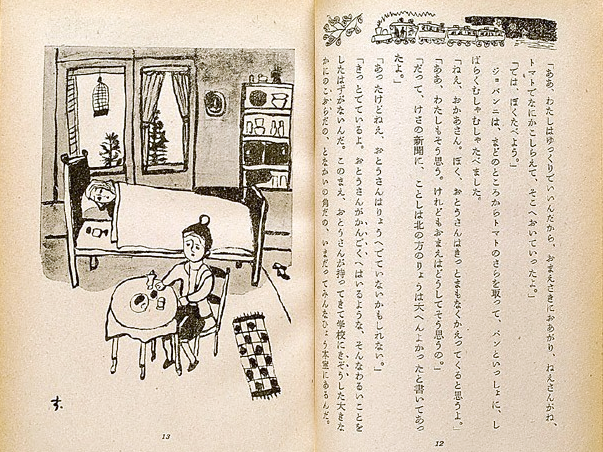 「ああ、わたしはゆっくりでいいんだから、おまえさきにおあがり、ねえさんがね、
トマトでなにかこしらえて、そこへおいていったよ。」
「では、ぼくたべよう。」
ジョバンニは、まどのところからトマトのさらを取って、パンといっしょに、し
ばらくむしゃむしゃたべました。
「ねえ、おかあさん。ぼく、おとうさんはきっとまもなくかえってくると思うよ。」
「ああ、わたしもそう思う。けれどもおまえはどうしてそう思うの。」
「だって、けさの新聞に、ことしは北の方のりょうは大へんよかったと書いてあっ
たよ。」
「あったけどねえ、おとうさんはりょうへでていないかもしれない。」
「きっとでているよ。おとうさんがかんごくへはいるような、そんなわるいことを
したはずがないんだ。このまえ、おとうさんが持ってきて学校にきぞうした大きな
かにのこうらだの、となかいの角だの、いまだってみんなひょう本室にあるんだ。
12
す.
13